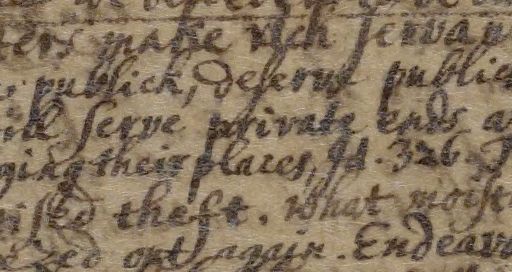 ers make rich servan
publick, deserve publick
serve private ends a
ging their places, Id. 326.
theft. What moist
out again. Endeavo